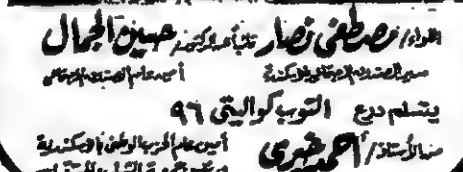 اللواء/ مصطفى نصار نائباً عن الدكتور/ حسين الجمال
مدير الصندوق الاجتماعى بالاسكندرية أمين عام الصندوق الاجتماعى
يتسلم درع التوب كواليتى ٩٦
من الأستاذ/ أحمد خيرى أمين عام الحزب الوطنى بالاسكندرية